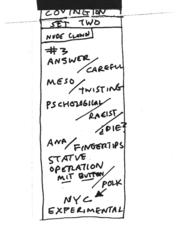 COVINGTON
SET TWO
NUDE CLOWN
#3
ANSWER/
CAREFUL
MESO/
TWISTING
PSCHOLOGICAL/
RACIST
¿DIE?
ANA/
FINGERTIPS
STATVE
OPERATION
MIT BUTTON
POLK
NYC
EXPERIMENTAL